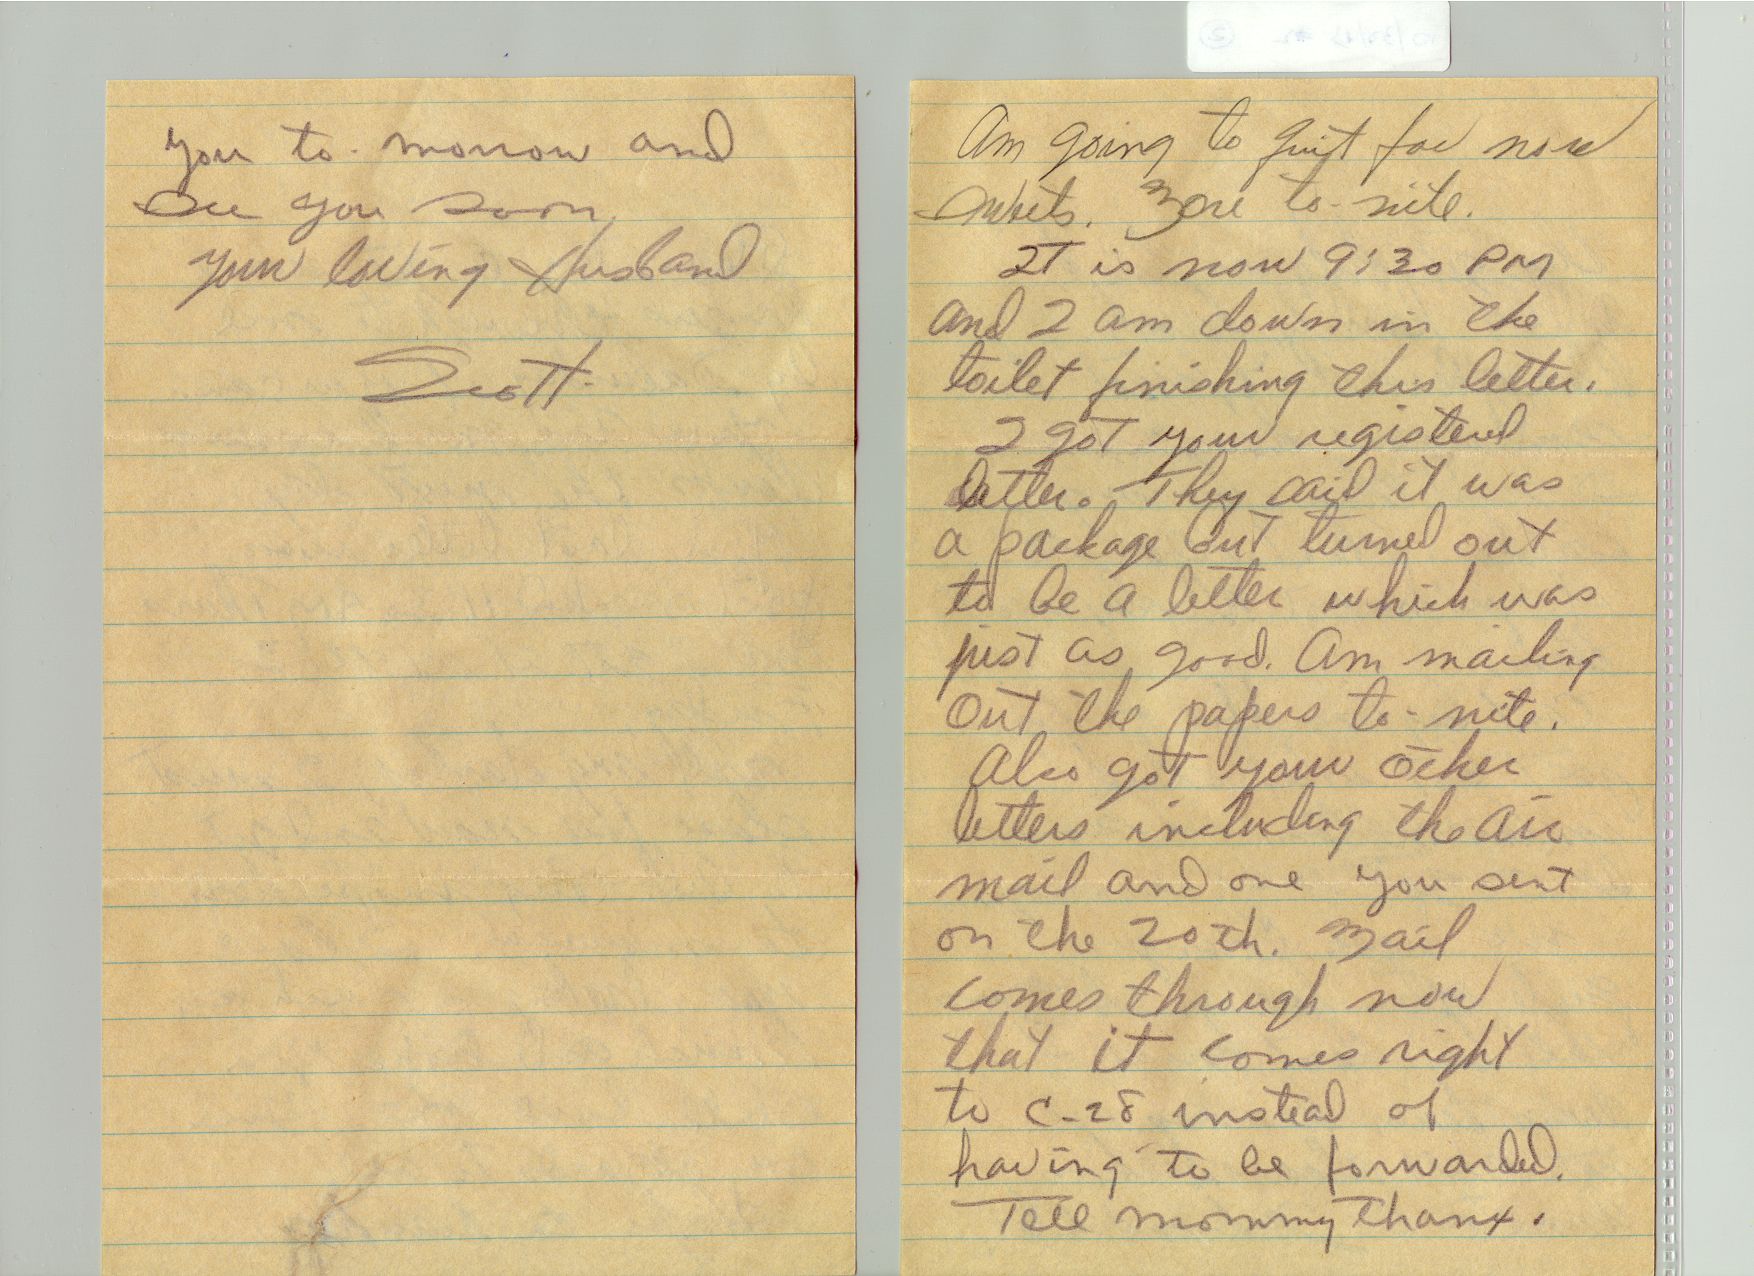 you to-morrow and
see you soon
your loving husband
Scott.
Am going to quit for now
sweets. More to-nite.
It is now 9:30 PM
and I am down in the
toilet finishing this letter.
I got your registered
letter. They said it was
a package but turned out
to be a letter which was
just as good. Am mailing
out the papers to-nite.
Also got your other
letters including the air
mail and one you sent
on the 20th. Mail
comes through now
that it comes right
to C-28 instead of
having to be forwarded.
Tell mommy thanx.